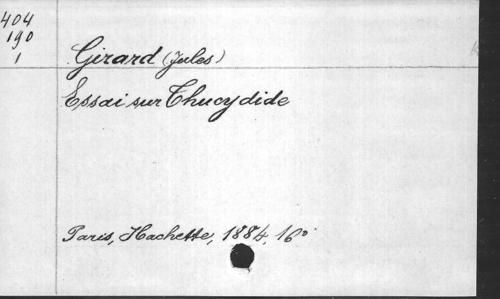 404
190
1
Girard (Jules)
Essai sur Thucydide
Paris, Hachette, 1884. 16°